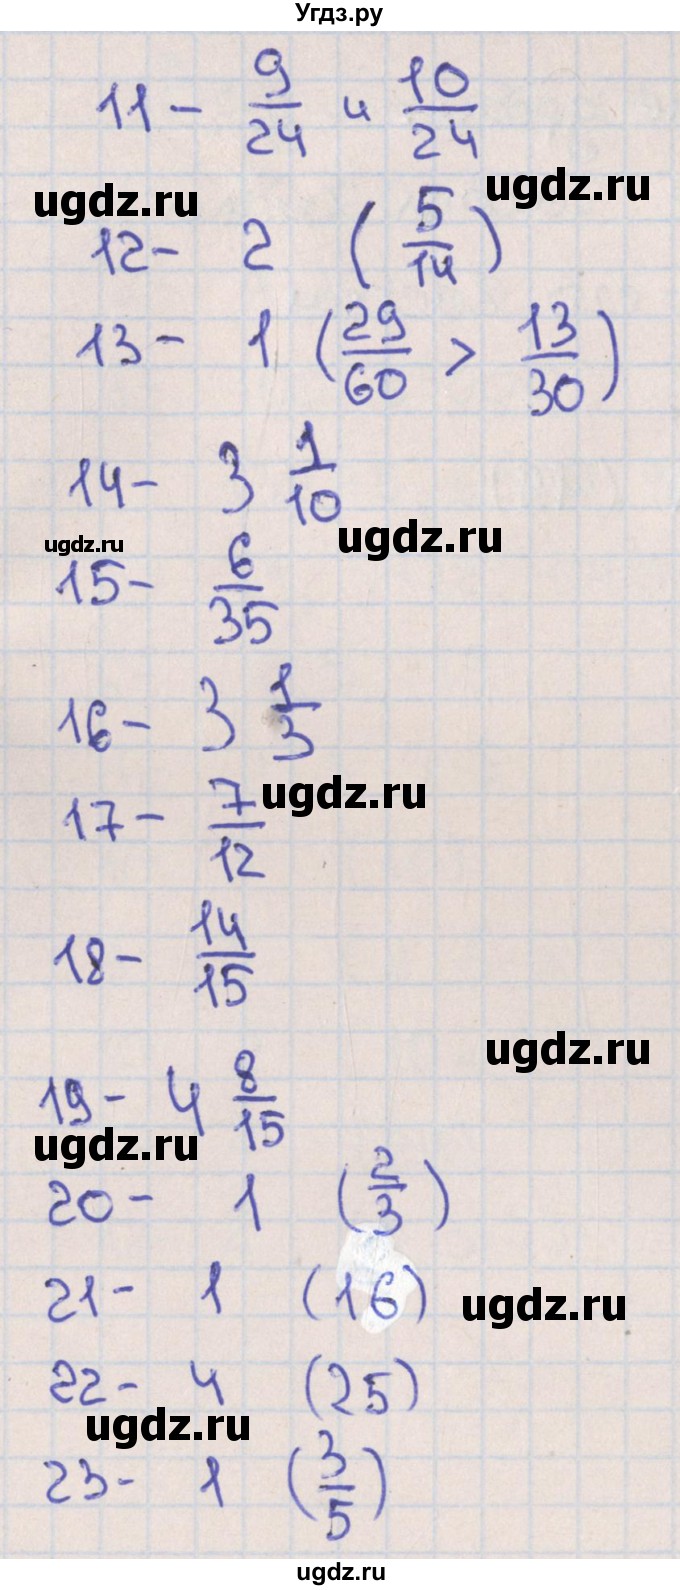 Угдз.ру
11 - 9/24 и 10/24
ugdz.ru
ugdz.ru
12 - 2 (5/14)
13 - 1 (29/60 > 13/30)
14 - 3 1/10
ugdz.ru
ugdz.ru
15 - 6/35
16 - 3 1/3
ugdz.ru
17 - 7/12
18 - 14/15
ugdz.ru
19 - 4 8/15
ugdz.ru
20 - 1 (2/3)
21 - 1 (16)
ugdz.ru
22 - 4 (25)
ugdz.ru
23 - 1 (3/5)
ugdz.ru